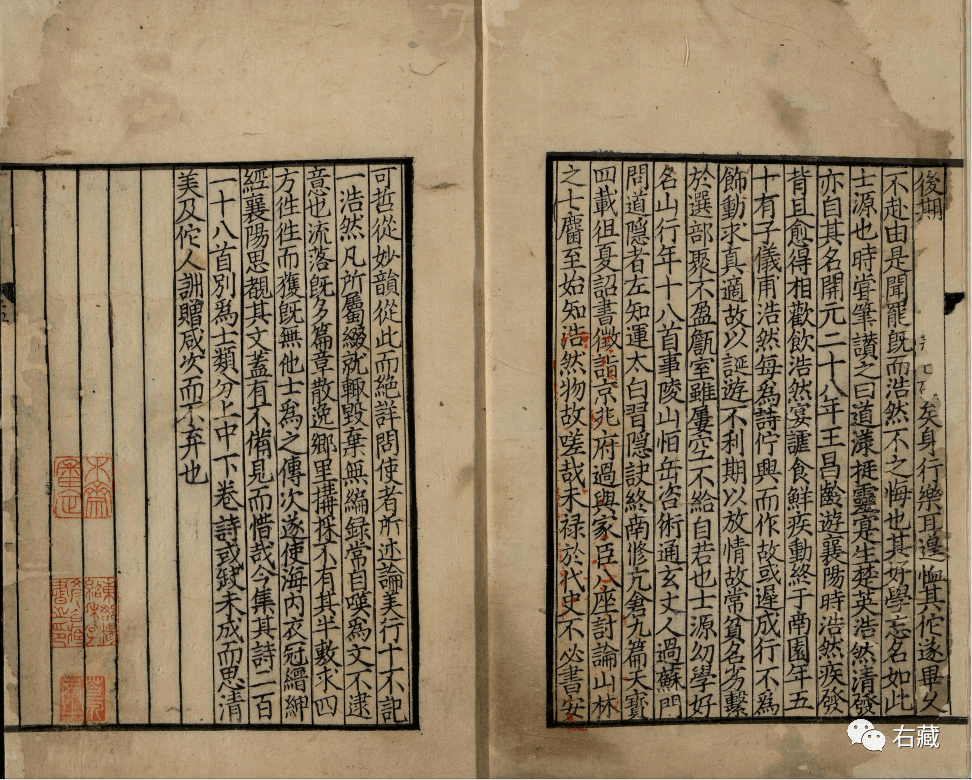 後期矣身行樂耳遑恤其佗遂畢乆
不赴由是聞罷旣而浩然不之悔也其好學忘名如此
士源也時甞筆讃之曰道漾挺靈寔生楚英浩然清發
亦自其名開元二十八年王昌齡遊襄陽時浩然疾發
背且愈得相歡飲浩然宴謔食鮮疾動終于南園年五
十有子儀甫浩然每爲詩佇興而作故或遲成行不爲
飾動求真適故以誕遊不利期以放情故常貧名劣繫
於選部聚不盈甔室雖屢空不給自若也士源幼學好
名山行年十八首事陵山怕岳咨術通玄丈人過蘇門
問道隱者左知運太白習隱訣終南修亢倉九篇天寶
四載徂夏詔書徵詣京兆府過與家臣八座討論山林
之士麕至始知浩然物故嗟哉未禄於代史不必書安
可哲從妙韻從此而絶詳問使者所述論美行十不記
一浩然凡所屬綴就輒毀弃無編録常自嘆爲文不逮
意也流落旣多篇章散逸鄉里搆採不有其半敷求四
方徃徃而獲旣無他士為之傳次遂使海内衣冠縉紳
經襄陽思覩其文蓋有不備見而惜哉今集其詩二百
一十八首別爲士類分上中下卷詩或缺未成而思清
美及佗人詶贈咸次而不弃也
木齋
審定
右藏